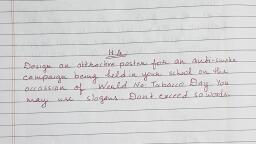 H.W
Design an attractive poster for an anti-smoke
campaign being held in your school on the
occassion of World No Tobacco Day. You
may use slogans. Dont exceed 50 words.